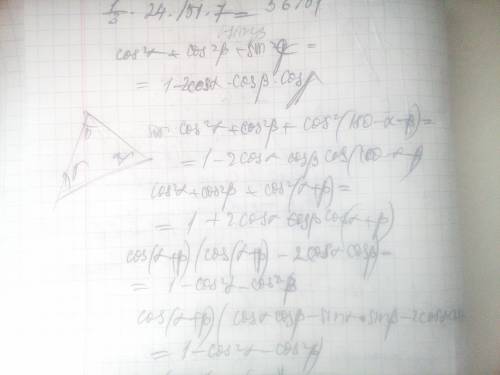 1/3 · 24 · √51 · 7 = 56√51
cos²α + cos²β + sin²φ =
= 1 - 2cosα · cosβ · cosγ
cos²α + cos²β + cos²(180 - α - β) =
= 1 - 2cosα cosβ cos(180 - α - β)
cos²α + cos²β + cos²(α + β) =
= 1 + 2cosα cosβ cos(α + β)
cos(α + β) (cos(α + β) - 2cosα cosβ) =
= 1 - cos²α - cos²β
cos(α + β) (cosα cosβ - sinα · sinβ - 2cosα
= 1 - cos²α - cos²β